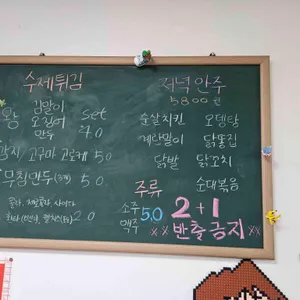 수제튀김
왕 김말이
오징어 set
만두 4.0
감자/고구마 고로케 5.0
무침만두(3개) 5.0
콜라, 사이다
2.0
저녁 안주
5800원
순살치킨 오뎅탕
계란말이 닭똥집
닭발 닭꼬치
순대볶음
주류
소주 맥주 5.0
2+1
반출금지